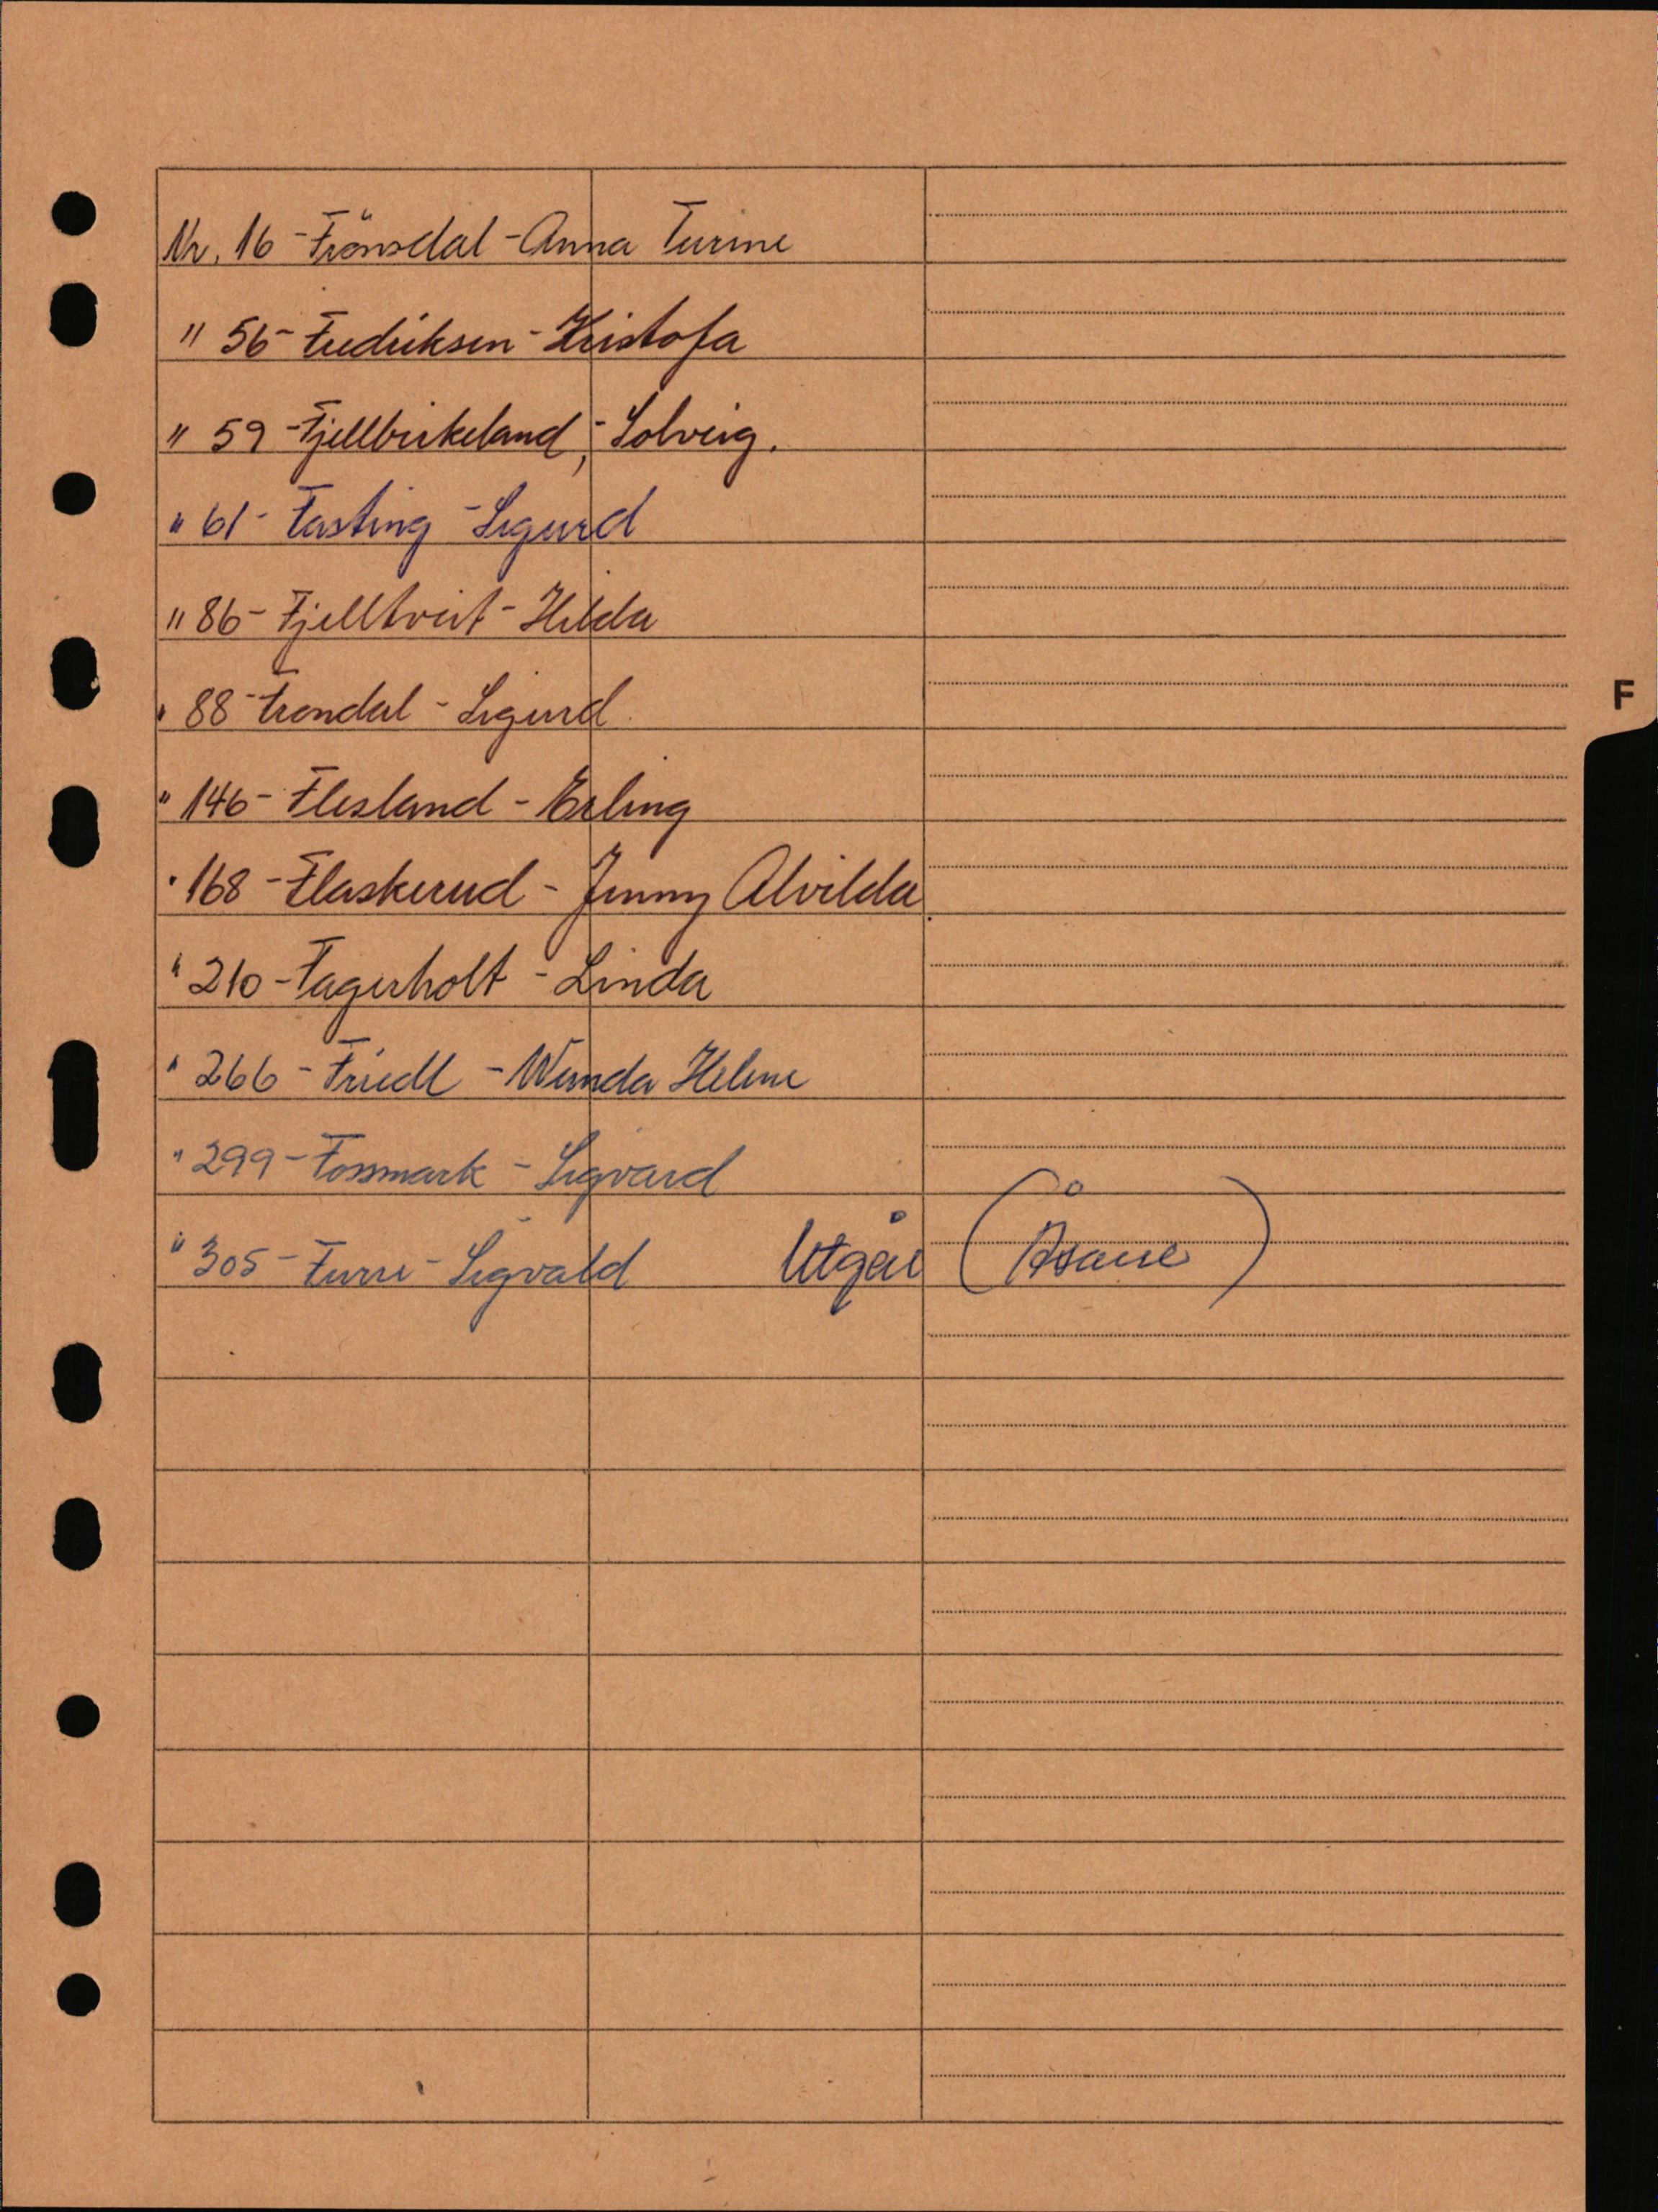 Nr. 16 - Frönsdal - Anna Turine
" 56 - Fredriksen - Kristofa
" 59 - Fjellbirkeland, - Solveig.
" 61 - Fasting - Sigurd
" 86 - Fjelltveit - Hilda
" 88 - Frondal - Sigurd
" 146 - Flesland - Erling
" 168 - Flaskerud - Jenny Alvilda
" 210 - Fagerholt - Linda
" 266 - Friedl - Wanda Helene
" 299 - Fossmark - Sigvard
" 305 - Furre - Sigvald Utgår (Åsane)
F